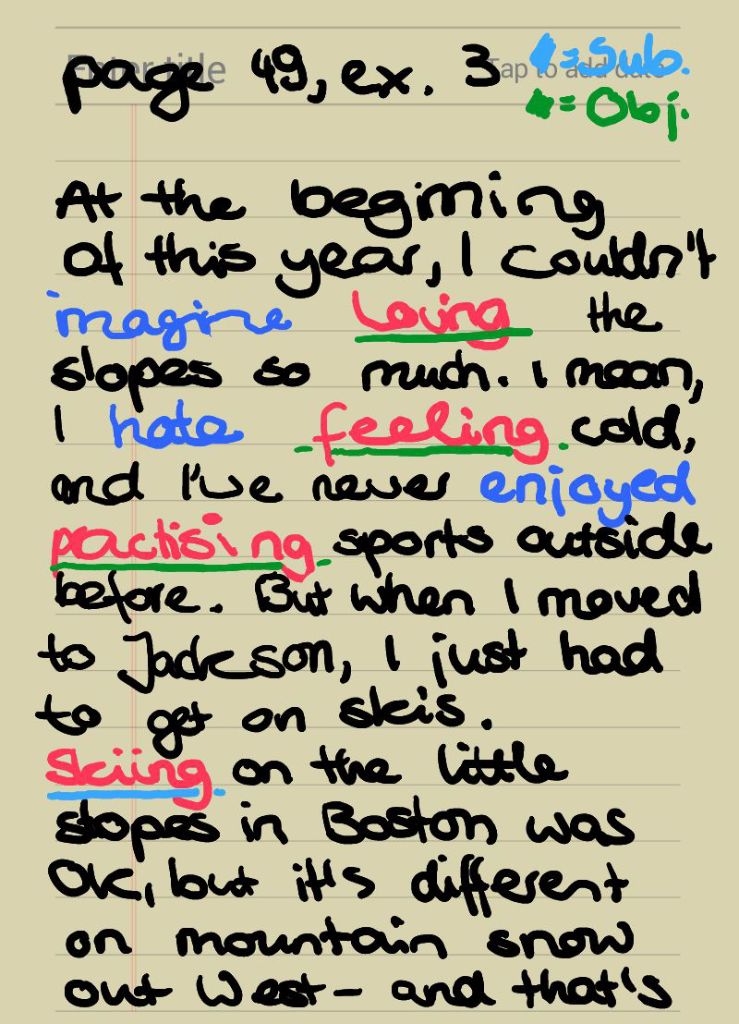 Enter title
Tap to add date
page 49, ex. 3
= Sub.
= Obj.
At the begining
of this year, I couldn't
imagine loving the
slopes so much. I mean,
I hate feeling cold,
and I've never enjoyed
practising sports outside
before. But when I moved
to Jackson, I just had
to get on skis.
Skiing on the little
slopes in Boston was
OK, but it's different
on mountain snow
out West - and that's